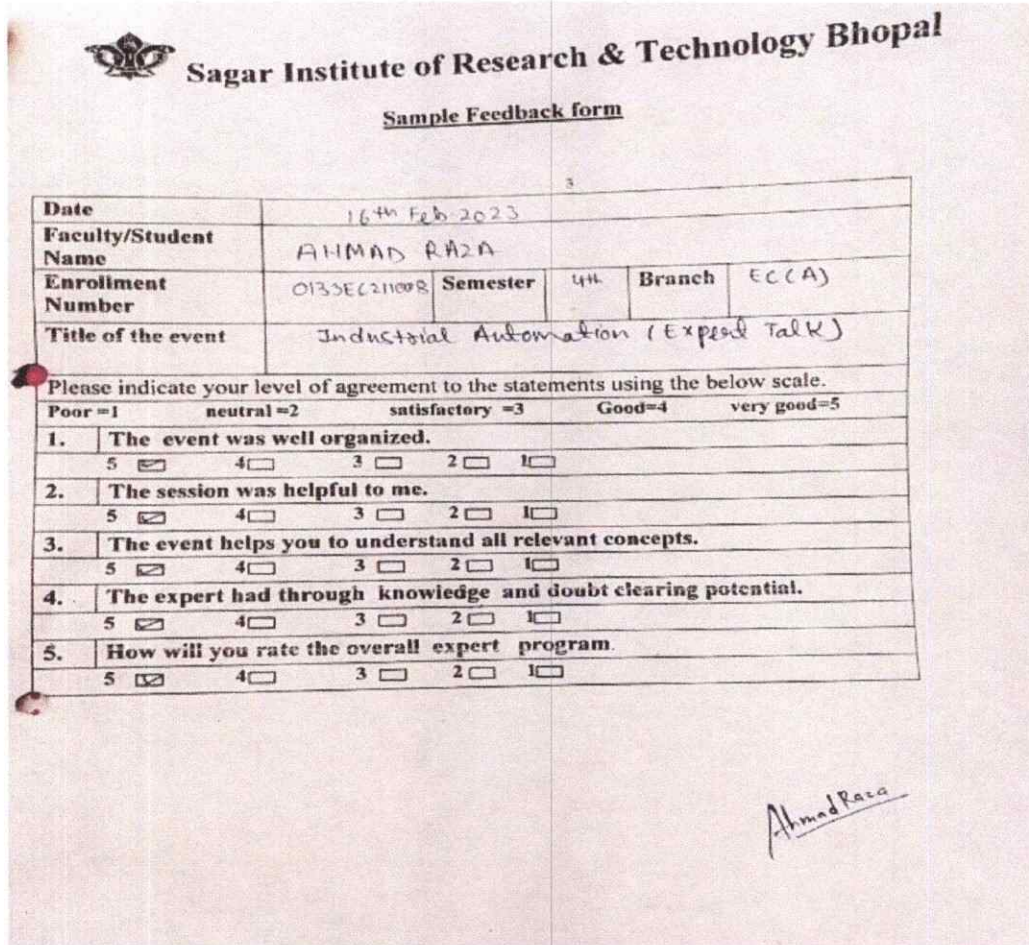 Sagar Institute of Research & Technology Bhopal
Sample Feedback form
3
Date 16th Feb 2023
Faculty/Student Name AHMAD RAZA
Enrollment Number 0133EC211008 Semester 4th Branch EC(A)
Title of the event Industrial Automation (Expert Talk)
Please indicate your level of agreement to the statements using the below scale.
Poor =1 neutral =2 satisfactory =3 Good=4 very good=5
1. The event was well organized.
5 ☑ 4☐ 3 ☐ 2☐ 1☐
2. The session was helpful to me.
5 ☑ 4☐ 3 ☐ 2☐ 1☐
3. The event helps you to understand all relevant concepts.
5 ☑ 4☐ 3 ☐ 2☐ 1☐
4. The expert had through knowledge and doubt clearing potential.
5 ☑ 4☐ 3 ☐ 2☐ 1☐
5. How will you rate the overall expert program.
5 ☑ 4☐ 3 ☐ 2☐ 1☐
Ahmad Raza